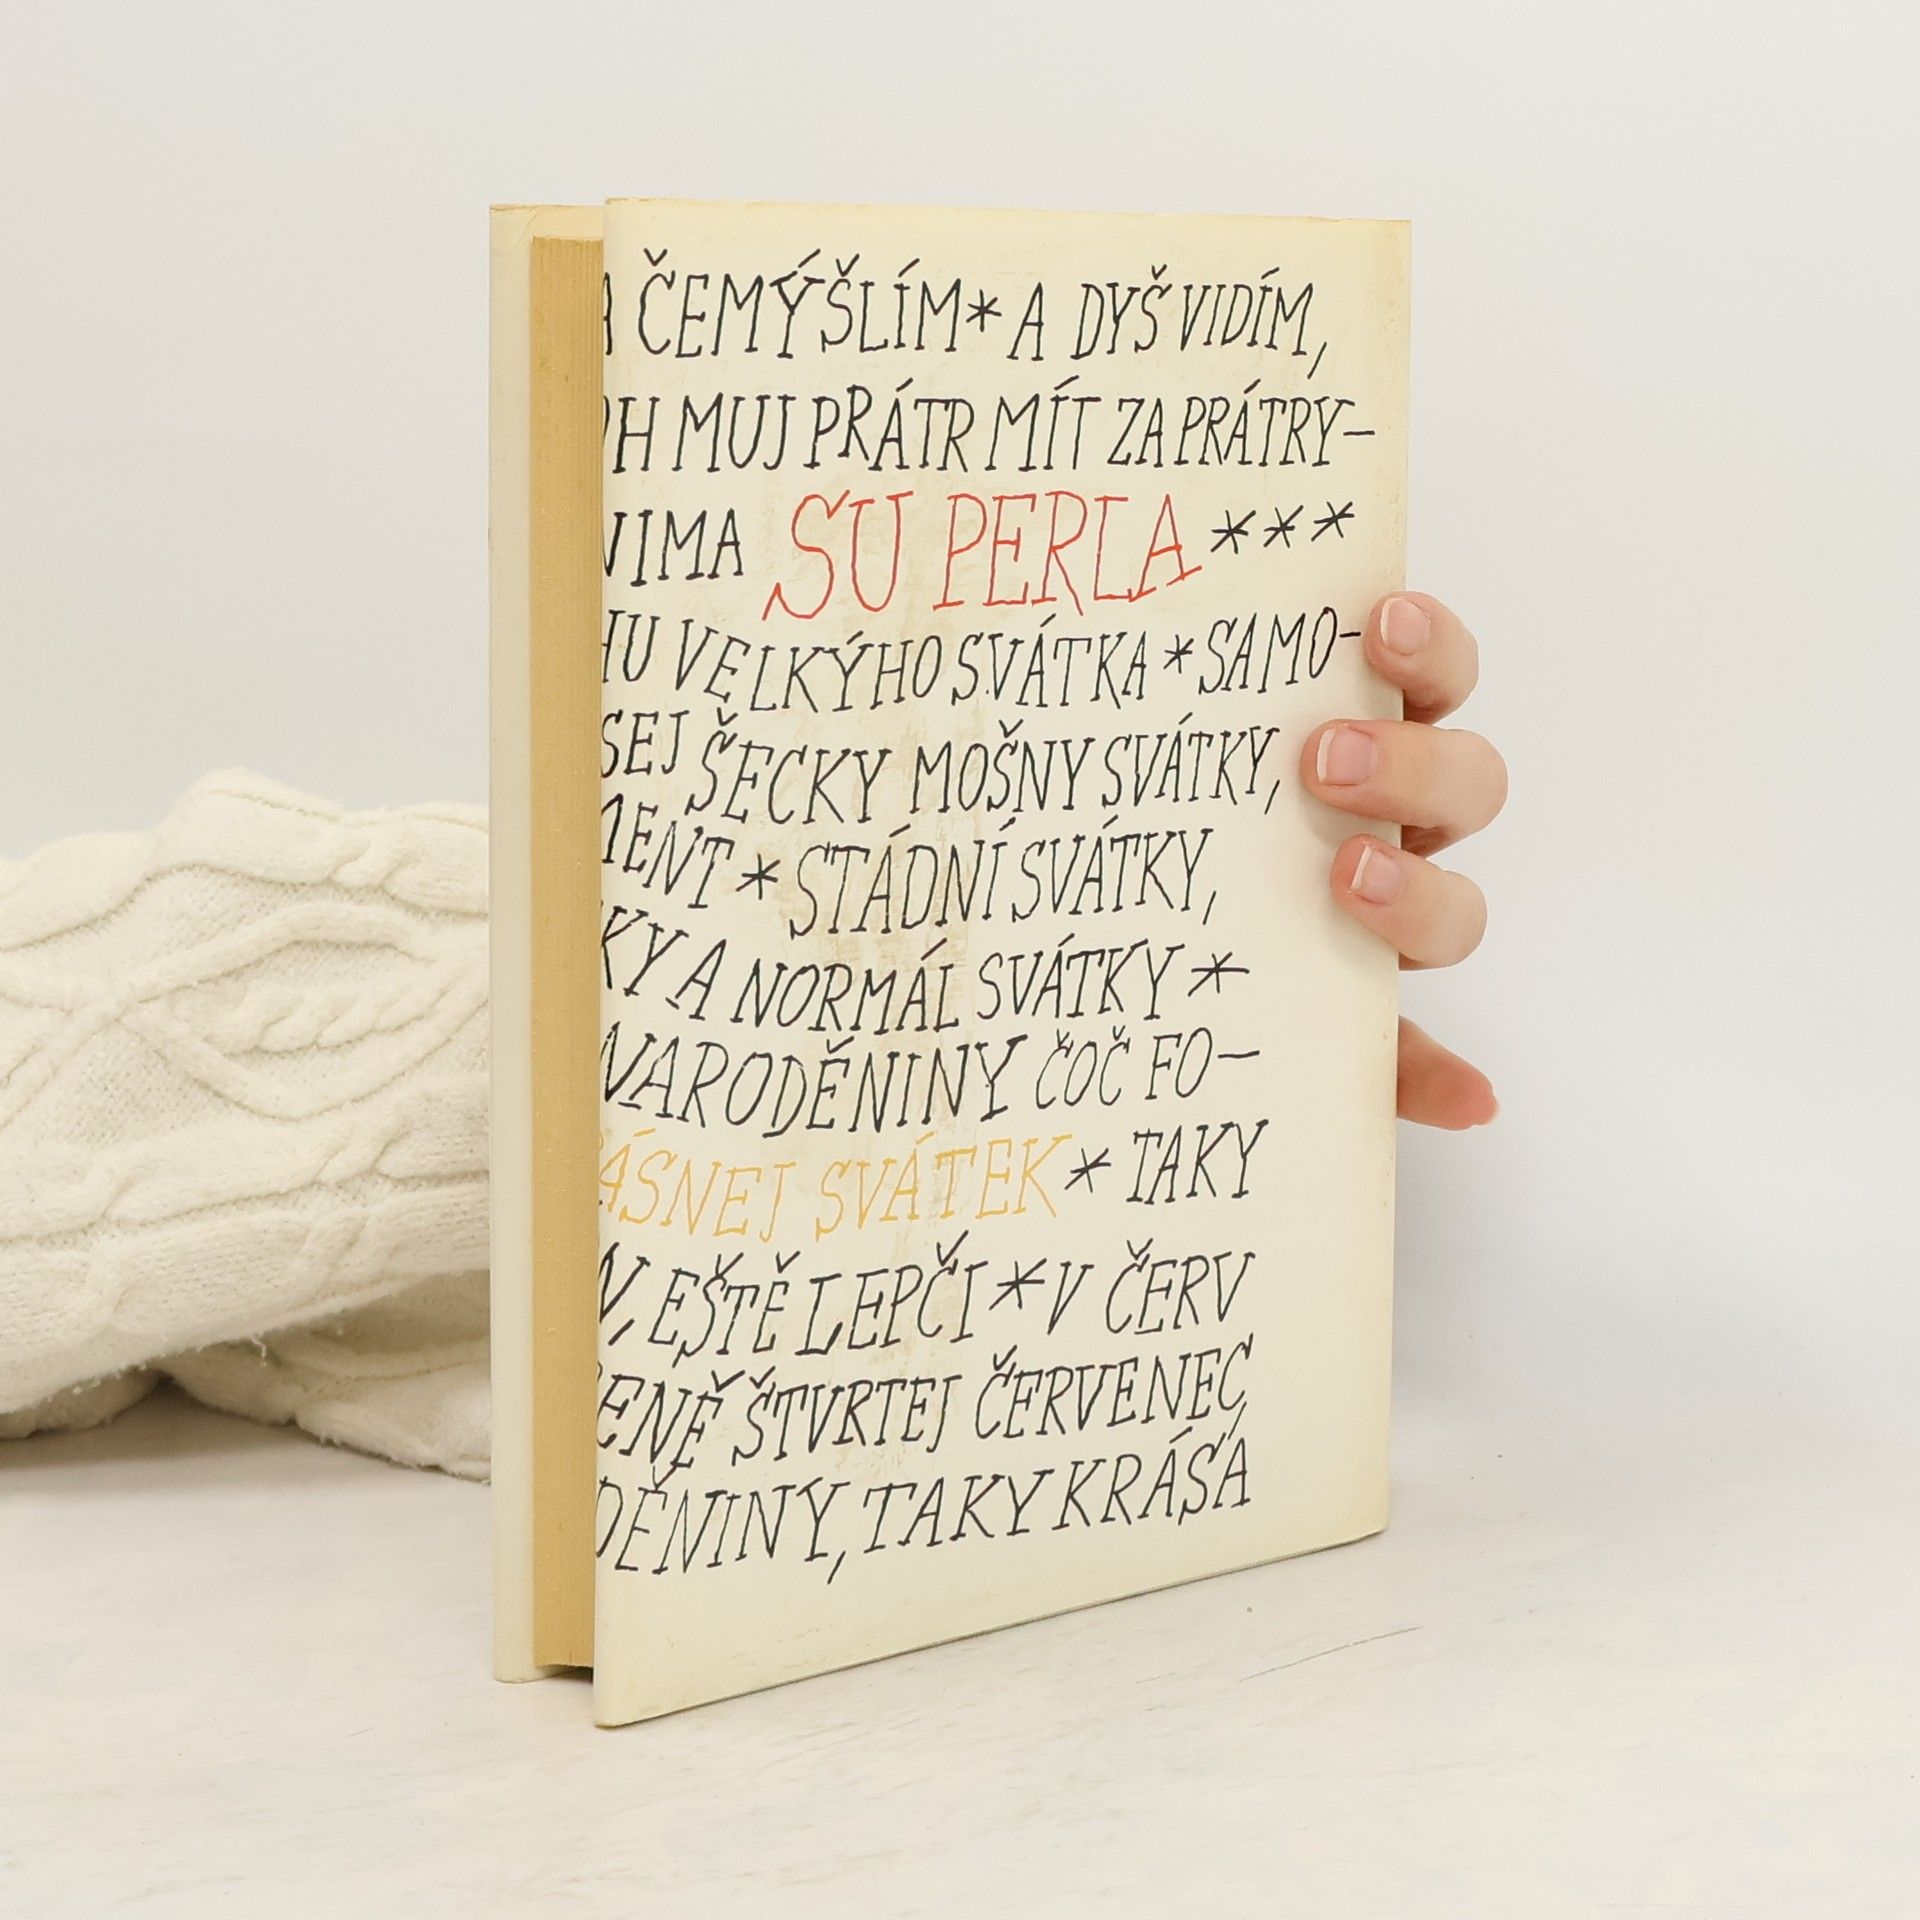 ČEMÝŠLÍM * A DYŠ VIDÍM,
MUJ PRÁTR MÍT ZA PRÁTRY–
SU PERLA ***
VELKÝHO SVÁTKA * SAMO-
ŠECKY MOŠNY SVÁTKY,
* STÁDNÍ SVÁTKY,
A NORMÁL SVÁTKY *
NARODĚNINY ČOČ FO–
SVÁTEK * TAKY
EŠTĚ LEPČI * V ČERV
ŠTVRTEJ ČERVENEC,
TAKY KRÁSA